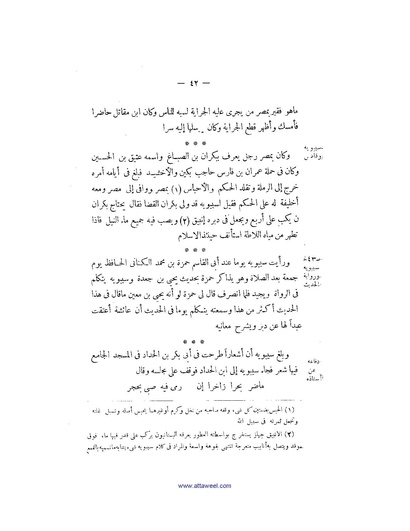 — ٤٢ —
ماهو فقير بمصر من يجرى عليه الجراية لسبه للناس وكان ابن مقاتل حاضرا
فأمسك وأظهر قطع الجراية وكان يرسلها إليه سرا
* * *
سيبويه
وكان بمصر رجل يعرف ببكران بن الصباغ واسمه عتيق بن الحسين
وكان فى حملة عمران بن فارس حاجب بكين والأخشيد فبلغ فى أيامه أمره
خرج إلى الرملة وتقلد الحكم والأحباس (١) بمصر ووافى إلى مصر ومعه
خليفة له على الحكم فقيل لسيبويه قد ولى بكران القضا فقال يحتاج بكران
ن يكب على أربع ويجعل فى دبره إنبيق (٢) ويصب فيه جميع ماء النيل فاذا
تطهر من مياه اللاطة استأنف حينئذ الاسلام
* * *
سيبويه
ورواية
الحديث
ورأيت سيبويه يوما عند أبى القاسم حمزة بن محمد الكنانى الحافظ يوم
جمعة بعد الصلاة وهو يذاكر حمزة بحديث يحيى بن جعدة وسيبويه يتكلم
فى الرواة ويجيد فلما انصرف قال لى حمزة لو أنه يحيى بن معين ماقال فى هذا
الحديث أكثر من هذا وسمعته يتكلم يوما فى الحديث أن عائشة أعتقت
عبداً لها عن دبر ويشرح معانيه
* * *
دفاعه
عن
أستاذه
وبلغ سيبويه أن أشعاراً طرحت فى أبى بكر بن الحداد فى المسجد الجامع
فيها شعر فجاء سيبويه إلى ابن الحداد فوقف على مجلسه وقال
ماضر بحرا زاخرا إن رمى فيه صبى بحجر
(١) الحبس بضمتين كل شىء وقفه صاحبه من نخل وكرم أو غيرهما يحبس أصله وتسبل غلته
وتجعل ثمرته فى سبيل الله
(٢) الانبيق جهاز يستخرج بواسطته العطور يعرفه البستانيون يركب على قدر فيها ماء فوق
موقد ويتصل به أنابيب متعرجة تنتهى بفوهة واسعة والمراد فى كلام سيبويه شىء بدايته
www.attaweel.com